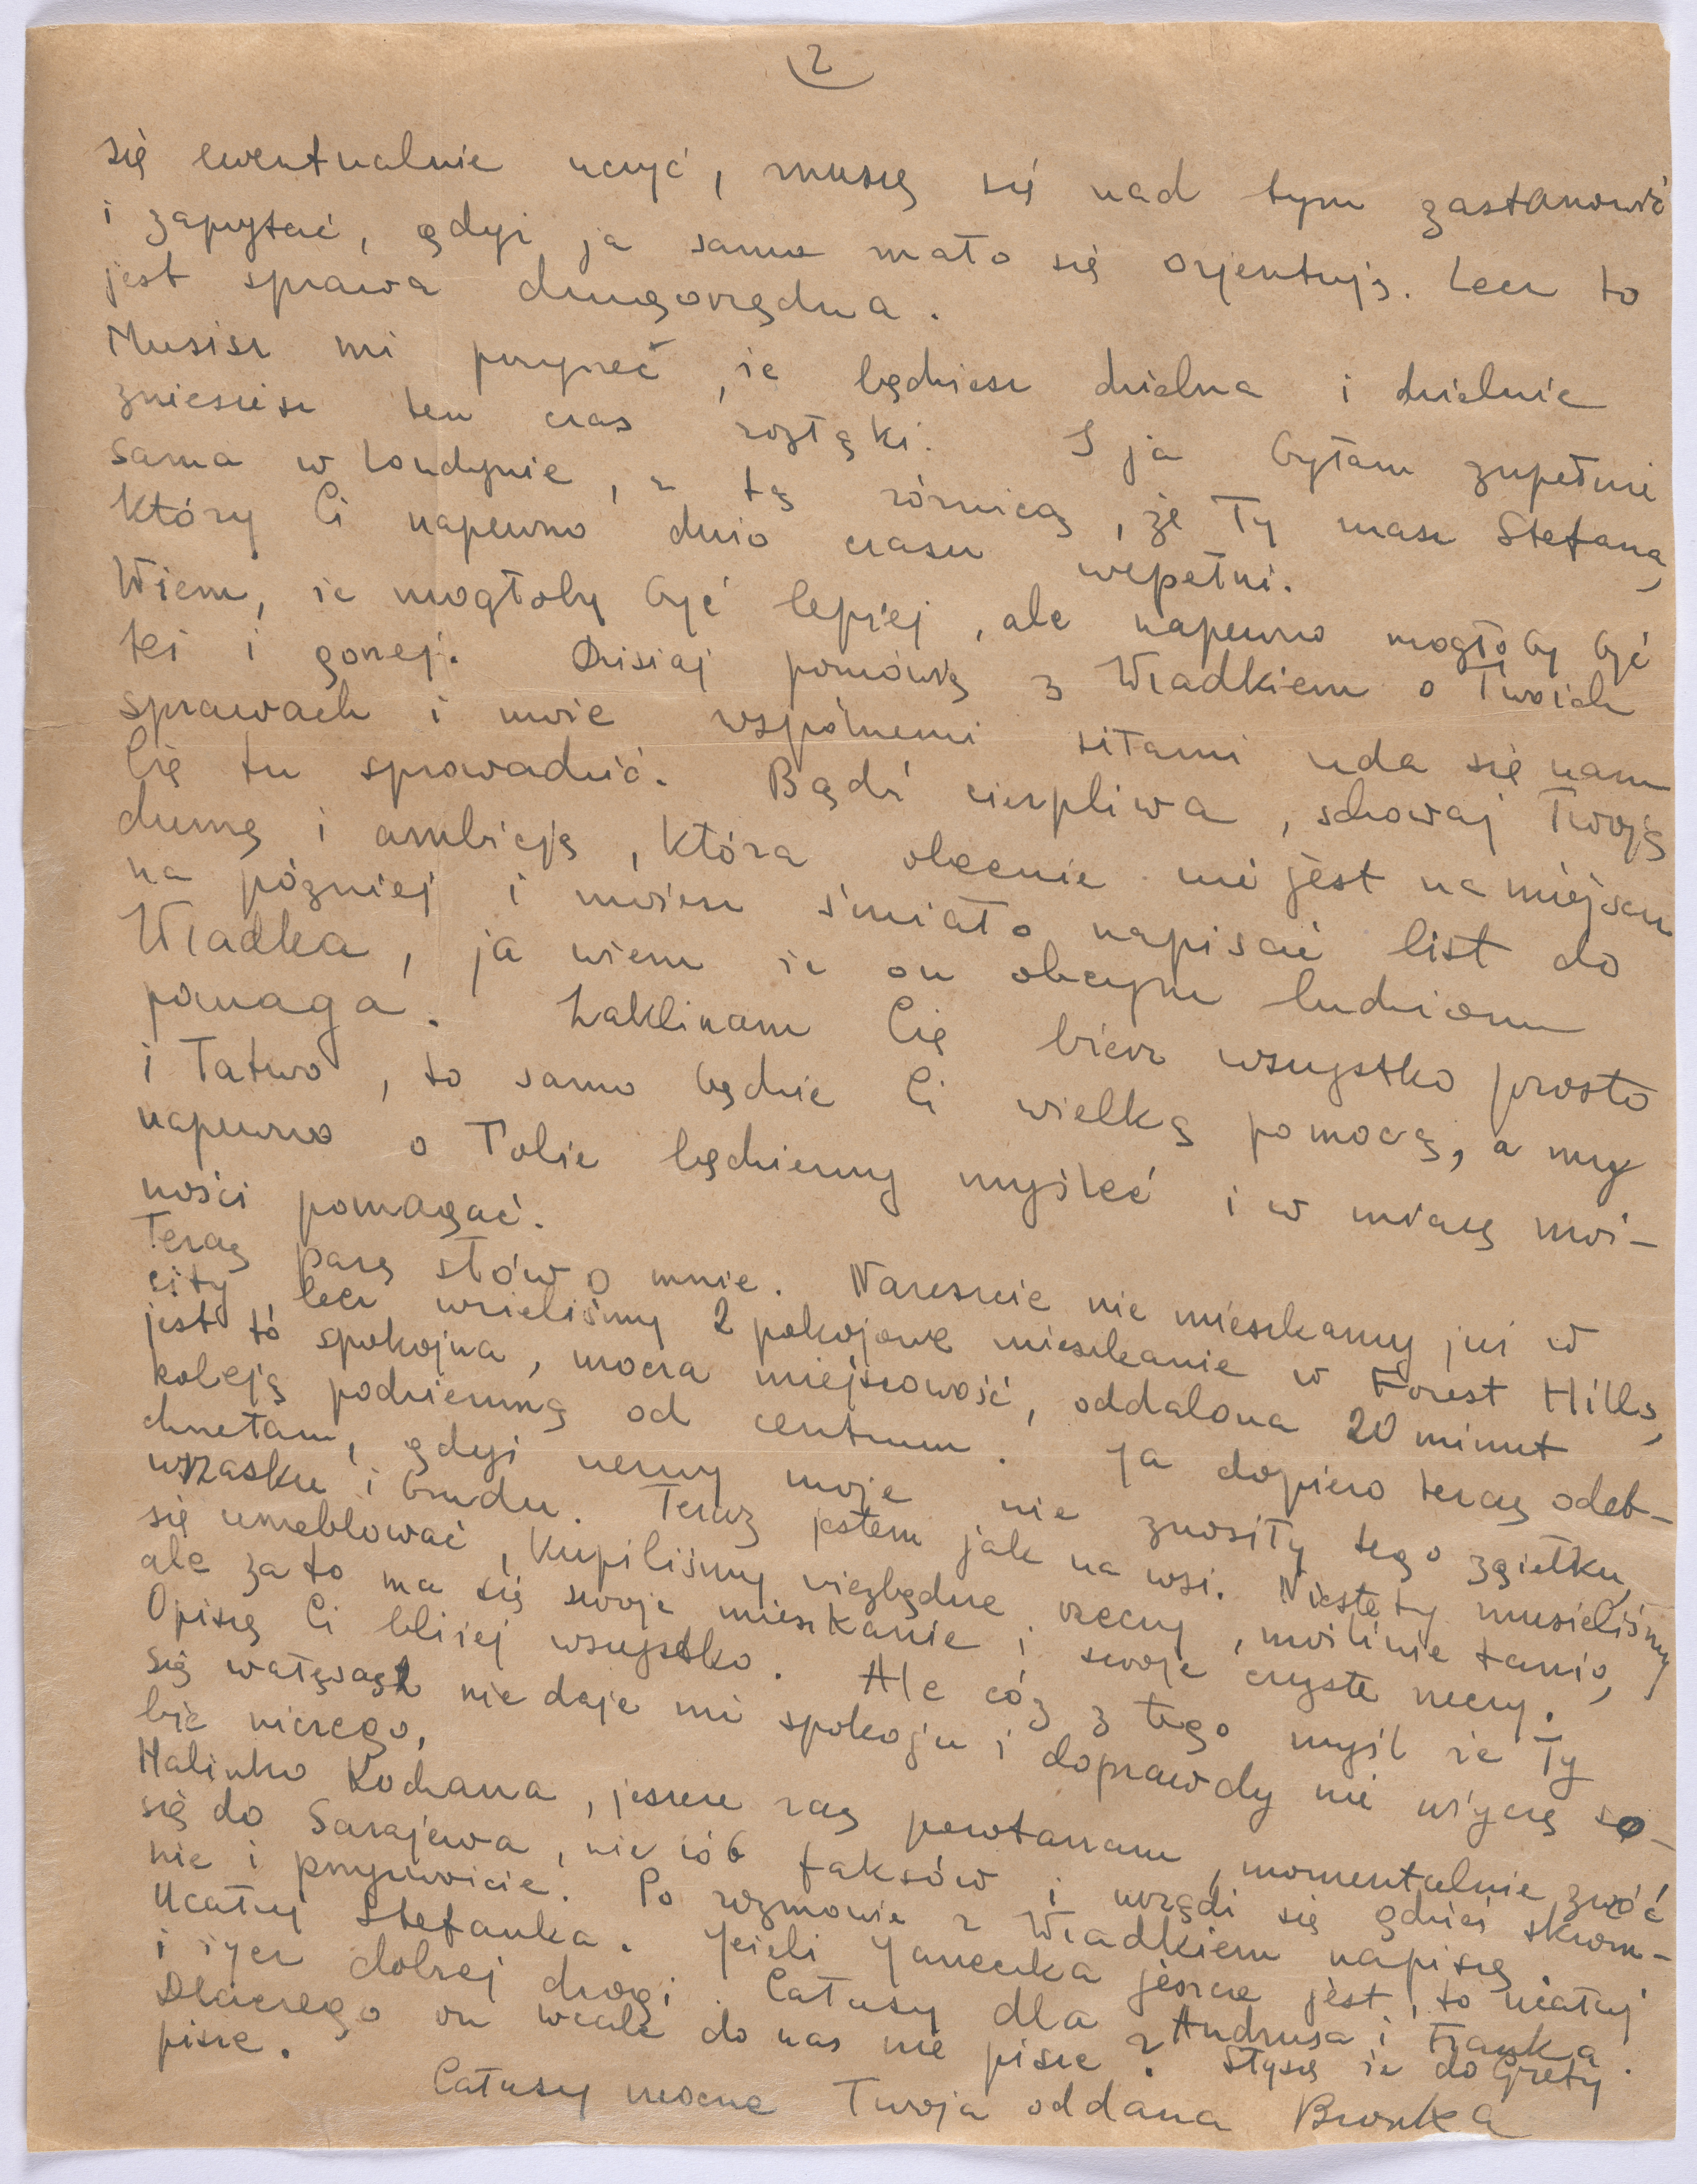 2
się ewentualnie uczyć, muszę się nad tym zastanowić
i zapytać, gdyż ja sama mało się orjentuję. Lecz to
jest sprawa drugorzędna.
Musisz mi przyrzec, że będziesz dzielna i dzielnie
zniesiesz ten czas rozłąki. I ja byłam zupełnie
sama w Londynie, z tą różnicą, że Ty masz Stefana,
który Ci napewno dużo czasu wepełni.
Wiem, że mogłoby być lepiej, ale napewno mogłoby być
też i gorzej. Dzisiaj pomówię z Władkiem o Twoich
sprawach i może wspólnemi siłami uda się nam
Cię tu sprowadzić. Bądź cierpliwa, schowaj Twoją
dumę i ambicję, która obecnie nie jest na miejscu
na później i możesz śmiało napisać list do
Władka, ja wiem że on obcym ludziom
pomaga. Zaklinam Cię bierz wszystko prosto
i łatwo, to samo będzie Ci wielką pomocą, a my
napewno o Tobie będziemy myśleć i w miarę moż-
ności pomagać.
Teraz parę słów o mnie. Nareszcie nie mieszkamy już w
city, lecz wzieliśmy 2 pokojowe mieszkanie w Forest Hills,
jest to spokojna, mocza miejscowość, oddalona 20 minut
koleją podziemną od centrum. Ja dopiero teraz odet-
chnełam, gdyż nerwy moje nie znosiły tego zgiełku,
wrzasku i brudu. Teraz jestem jak na wsi. Niestety musieliśmy
się umeblować, kupiliśmy niezbędne rzeczy, możliwie tanio,
ale za to ma się swoje mieszkanie i swoje czyste rzeczy.
Opiszę Ci bliżej wszystko. Ale cóż z tego myśl że Ty
się wałęsasz nie daje mi spokoju i doprawdy nie życzę so-
bie niczego.
Halinko Kochana, jeszcze raz powtarzam, momentalnie zwróć
się do Sarajewa, nie rób faksów i urządź się gdzieś skrom-
nie i przyzwoicie. Po rozmowie z Władkiem napiszę.
Ucałuj Stefanka. Jeżeli Janeczka jeszcze jest, to ucałuj
i życz dobrej drogi. Całusy dla Andrusa i Franka.
Dlaczego on wcale do nas nie pisze? Słyszę że do Grety
pisze.
Całusy mocne Twoja oddana Bronka